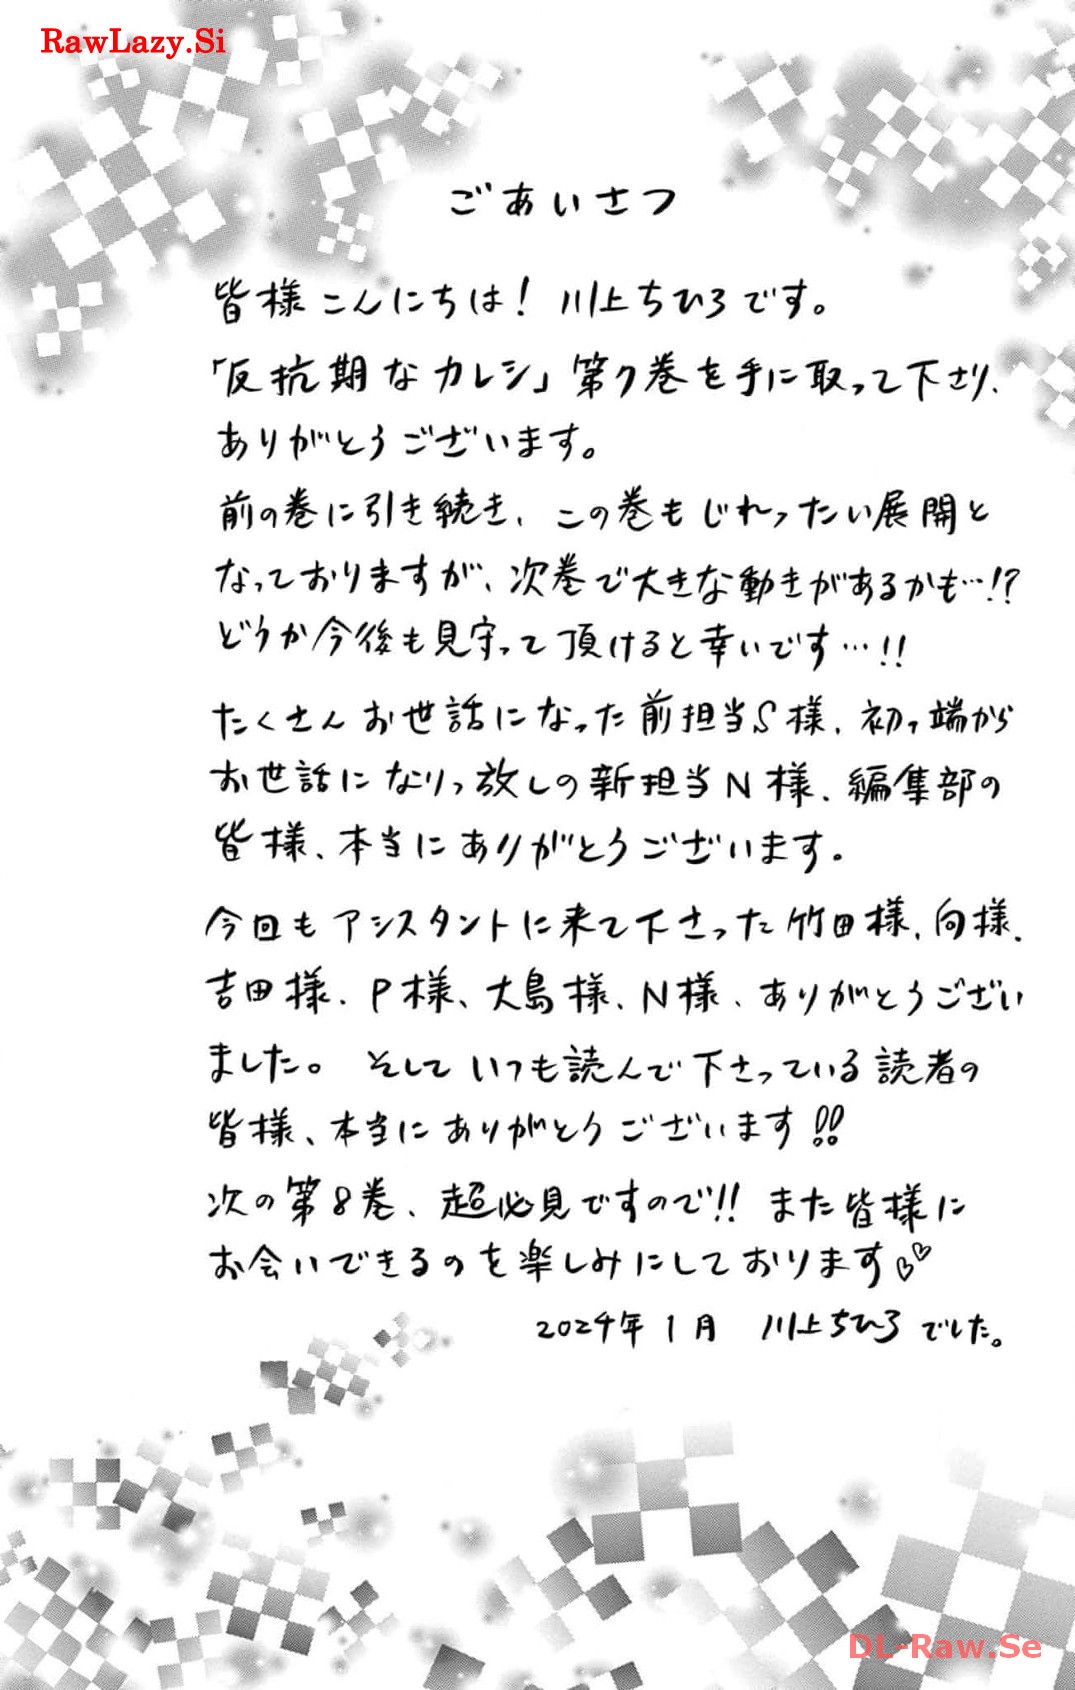 RawLazy.Si
ごあいさつ
皆様こんにちは! 川上ちひろです。
「反抗期なカレシ」第7巻を手に取って下さり、
ありがとうございます。
前の巻に引き続き、この巻もじれったい展開と
なっておりますが、次巻で大きな動きがあるかも…!?
どうか今後も見守って頂けると幸いです…!!
たくさんお世話になった前担当S様、初っ端から
お世話になりっ放しの新担当N様、編集部の
皆様、本当にありがとうございます。
今回もアシスタントに来て下さった竹田様、向様、
吉田様、P様、大島様、N様、ありがとうござい
ました。 そしていつも読んで下さっている読者の
皆様、本当にありがとうございます!!
次の第8巻、超必見ですので!! また皆様に
お会いできるのを楽しみにしております♡♡
2024年1月 川上ちひろでした。
DL-Raw.Se